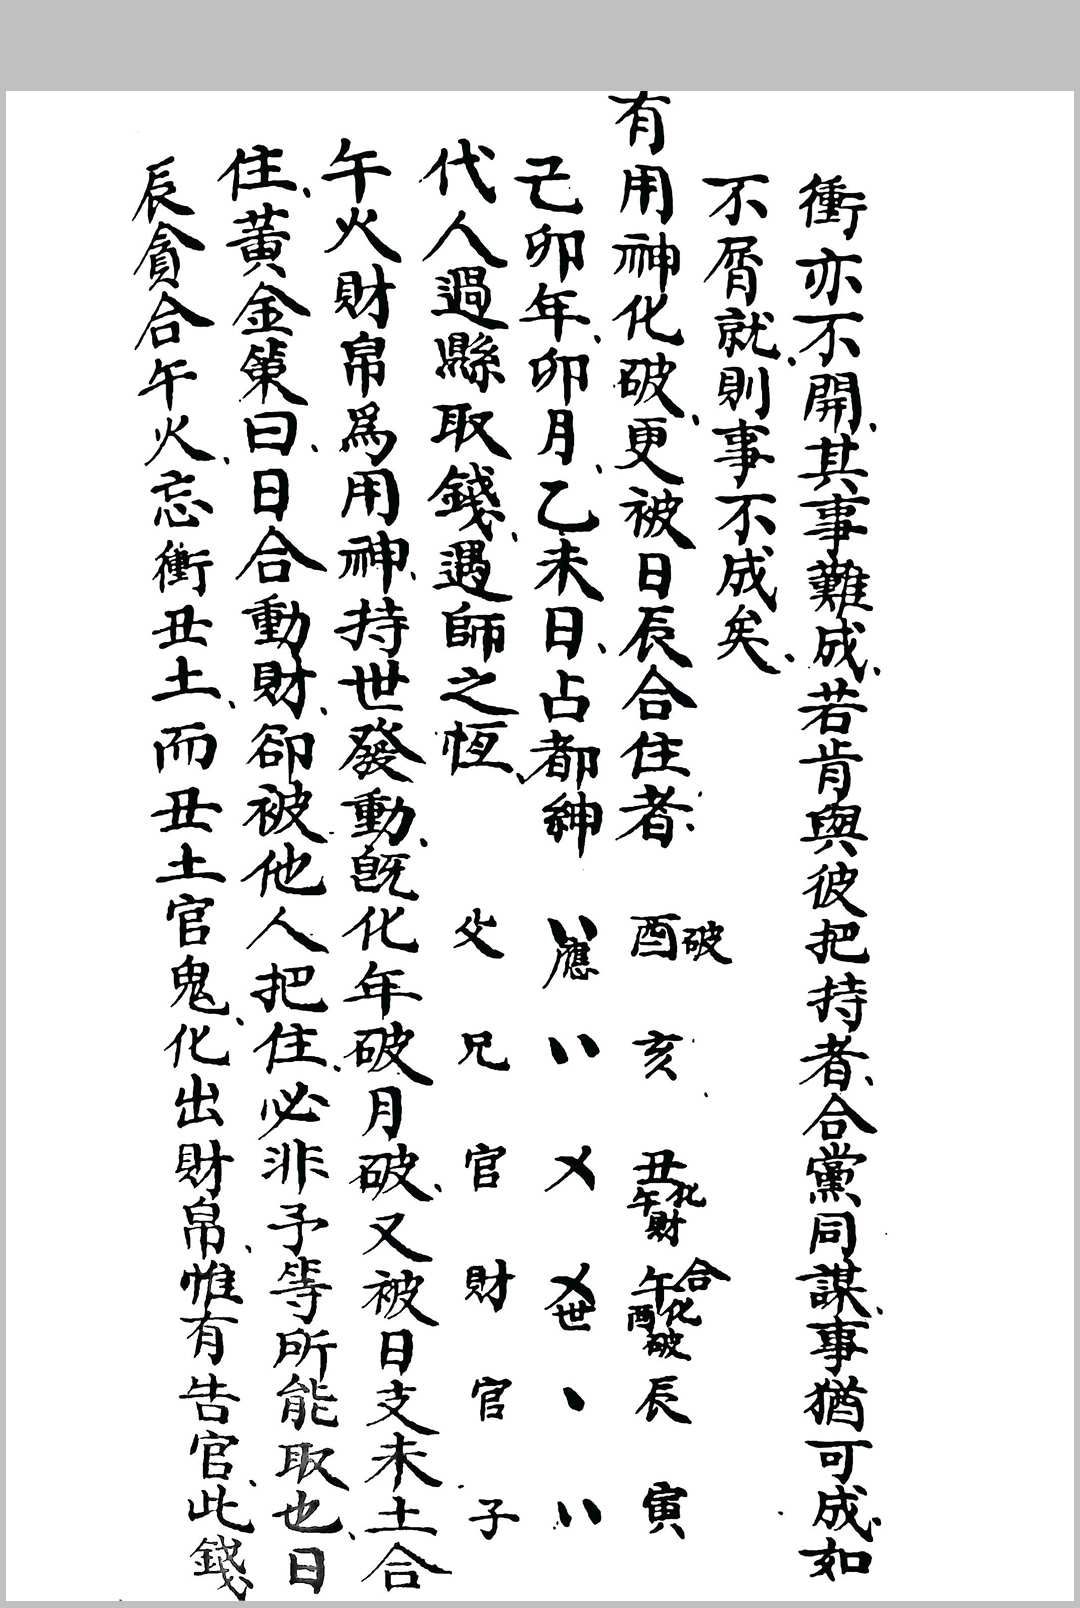 衝亦不開、其事難成、若肯與彼把持者、合黨同謀、事猶可成、如
不屑就、則事不成矣、
有用神化破、更被日辰合住者、 酉破 亥 丑化午財 午合化酉破 辰 寅
己卯年、卯月、乙未日、占都紳 〃應 〃 乂 乂世 、 〃
代人過縣取錢、遇師之恆、 父 兄 官 財 官 子
午火財帛爲用神、持世發動、旣化年破月破、又被日支未土合
住、黃金策曰、日合動財、卻被他人把住、必非予等所能取也、日
辰貪合午火、忘衝丑土、而丑土官鬼、化出財帛、惟有告官、此錢